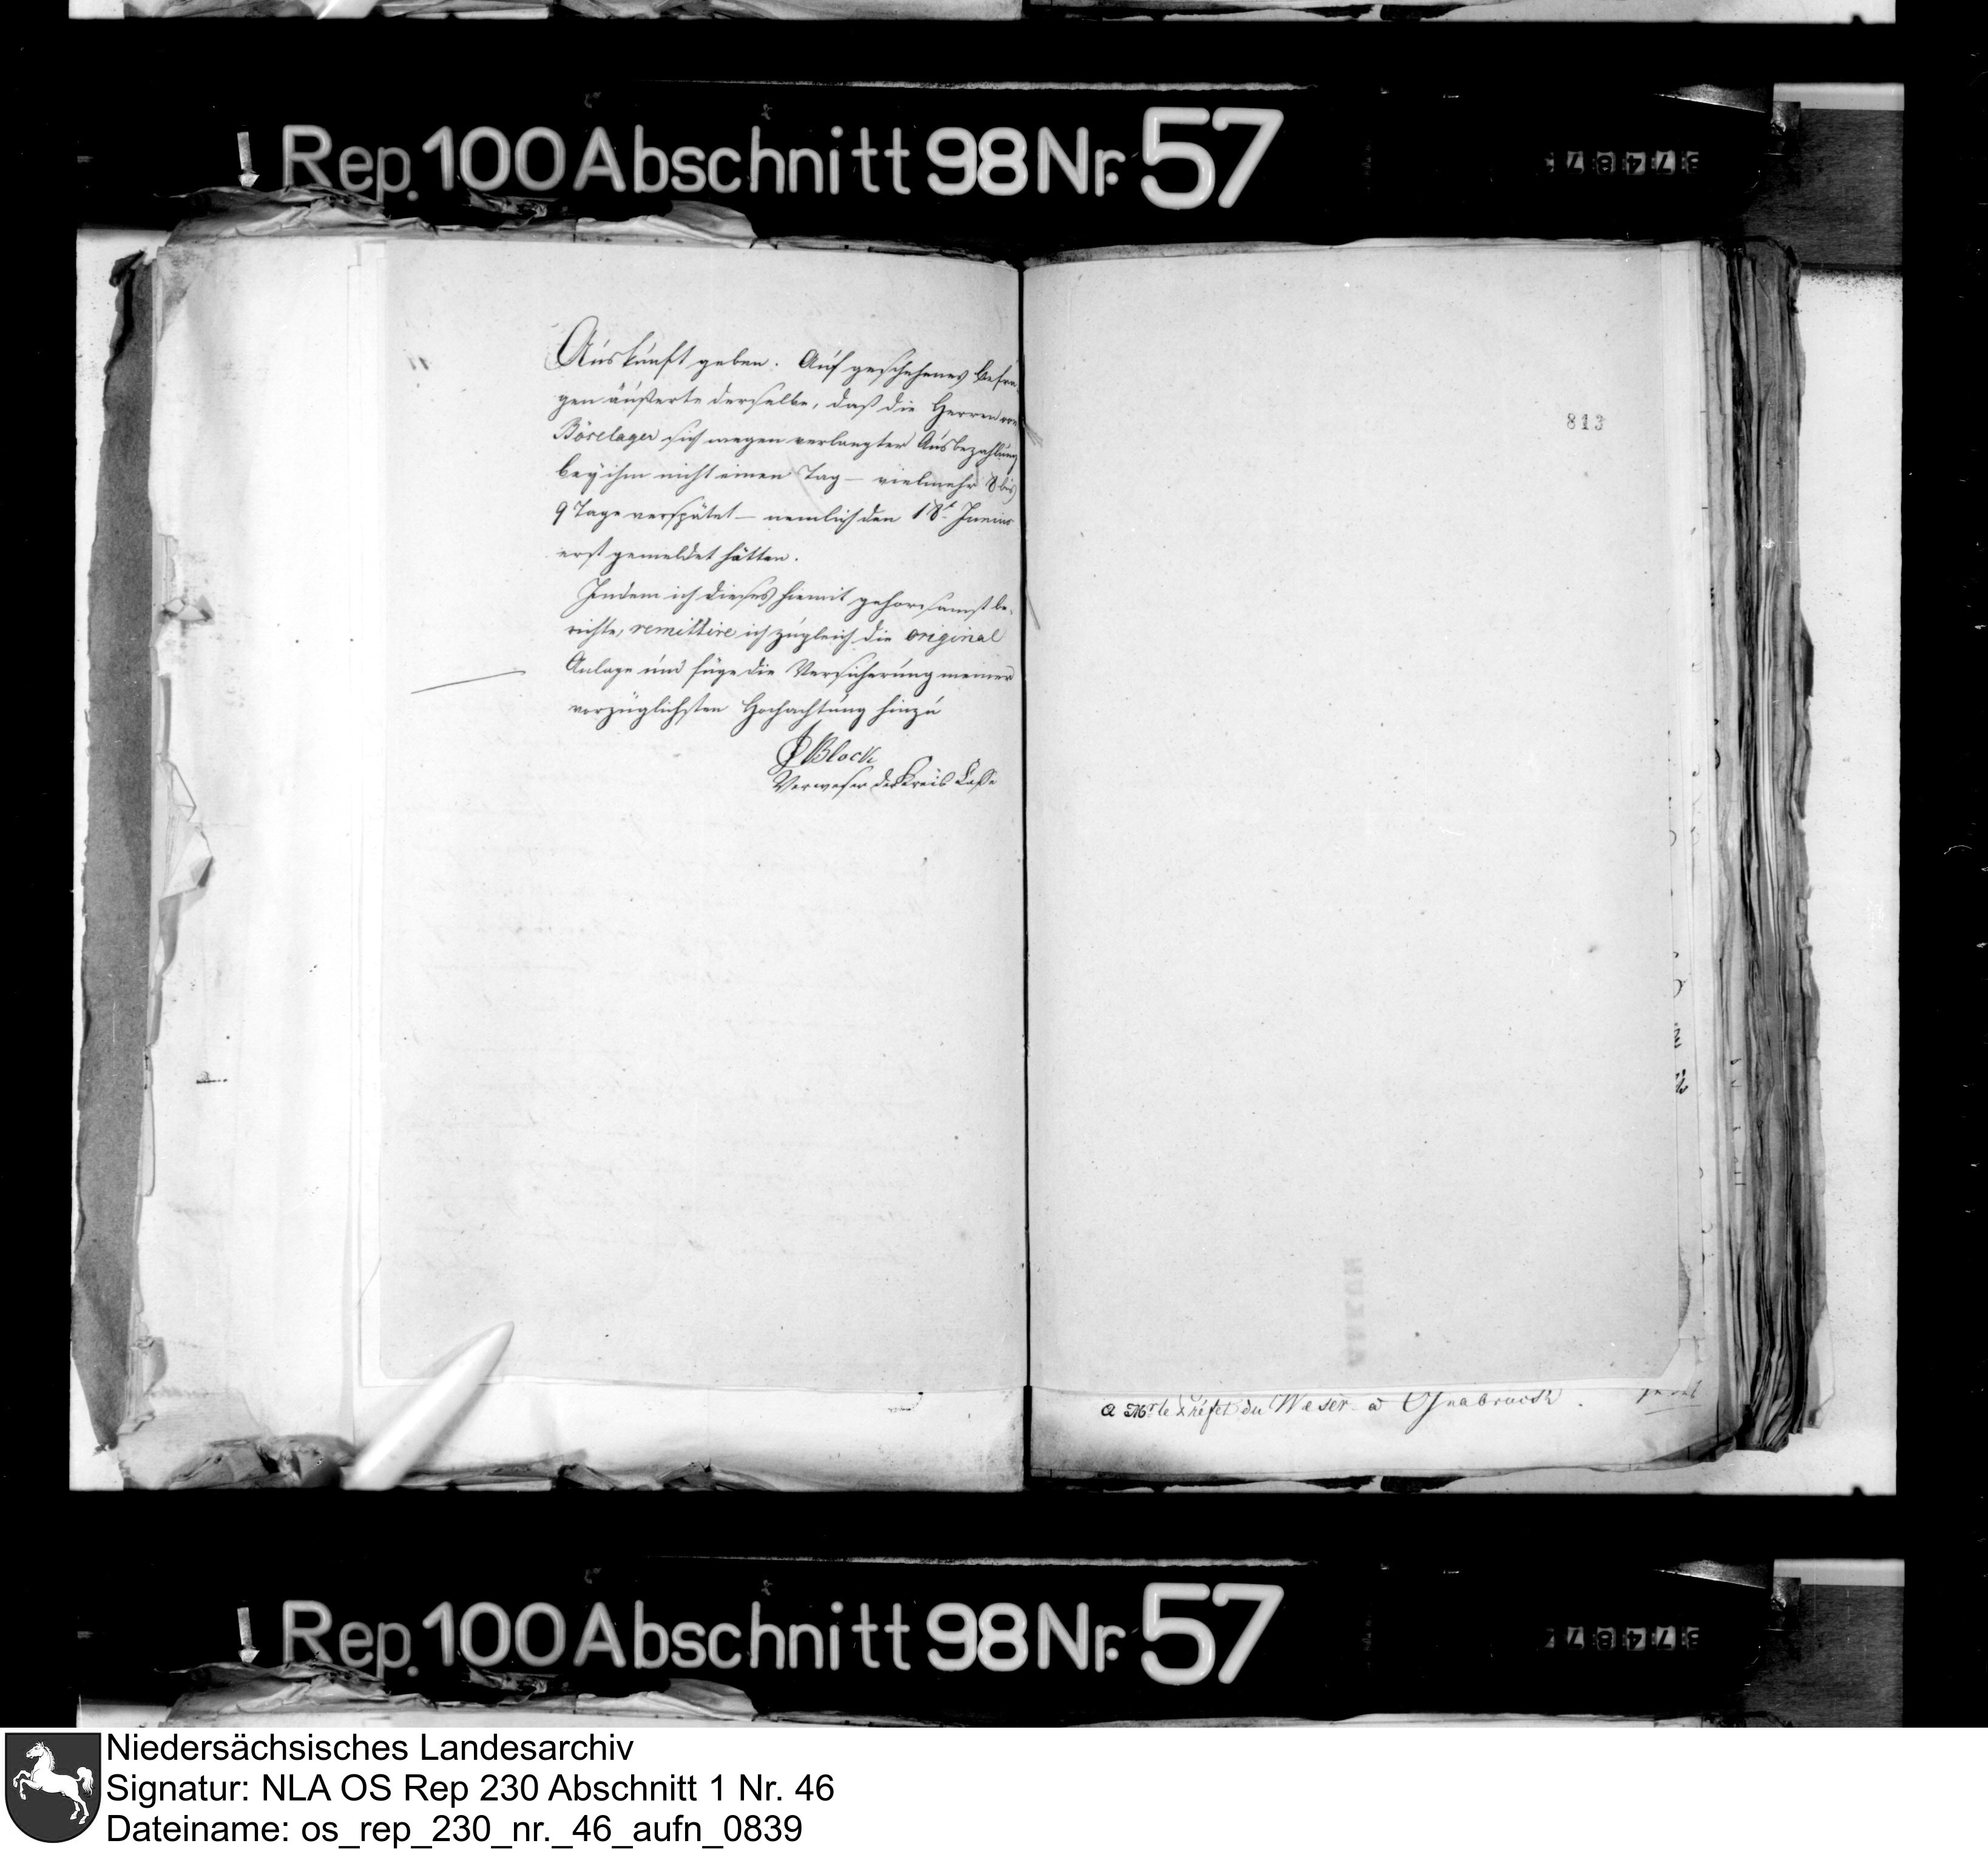 Rep. 100 Abschnitt 98 Nr. 57
37487
Auskunft geben. Auf geschehenes Befra-
gen äußerte derselbe, daß die Herren von
Böselager sich wegen verlangter Ausbezahlung
bey ihm nicht einen Tag – vielmehr 8 bis
9 Tage verspätet – nemlich den 18t Junius
erst gemeldet hätten.
Indem ich dieses hiemit gehorsamst be-
richte, remittire ich zugleich die original
Anlage und füge die Versicherung meiner
vorzüglichsten Hochachtung hinzu
Block
Verweser der Kreis Casse
813
a Mr. le Préfet du Weser a Osnabruck.
Rep. 100 Abschnitt 98 Nr. 57
37487
Niedersächsisches Landesarchiv
Signatur: NLA OS Rep 230 Abschnitt 1 Nr. 46
Dateiname: os_rep_230_nr._46_aufn_0839